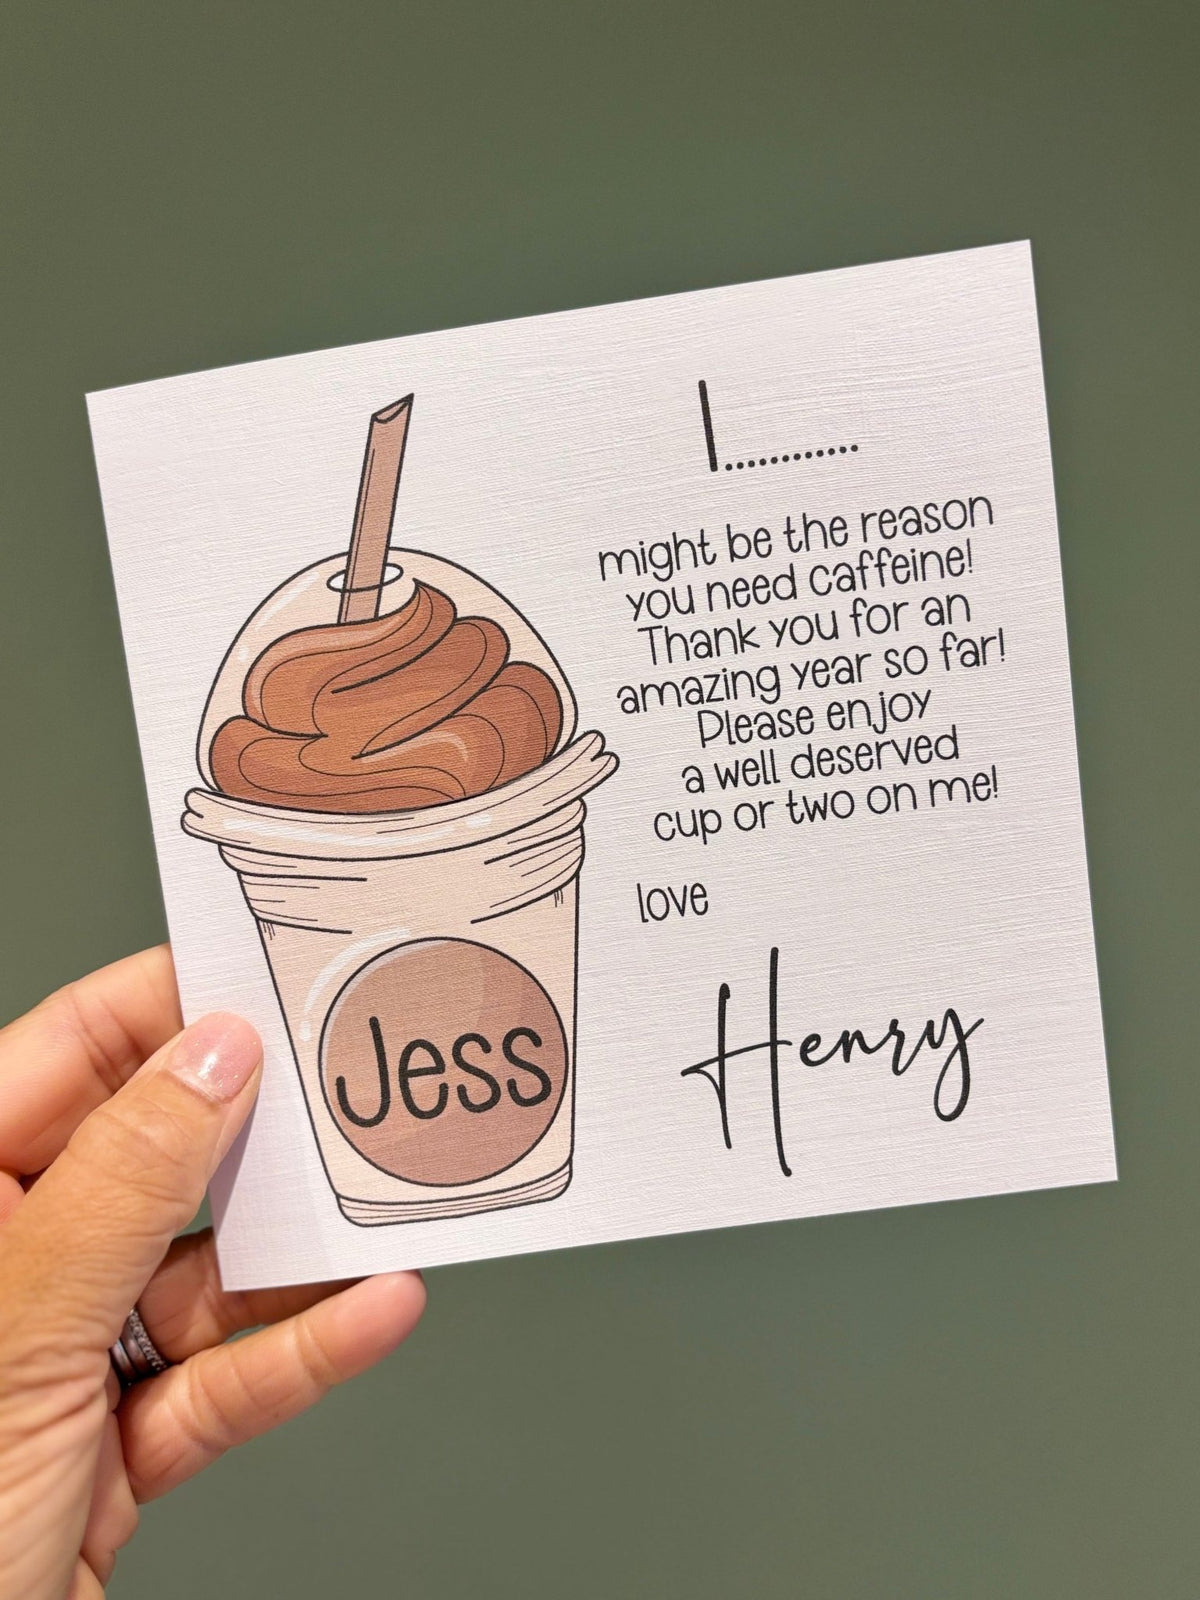 I............
might be the reason
you need caffeine!
Thank you for an
amazing year so far!
Please enjoy
a well deserved
cup or two on me!
love
Henry
Jess